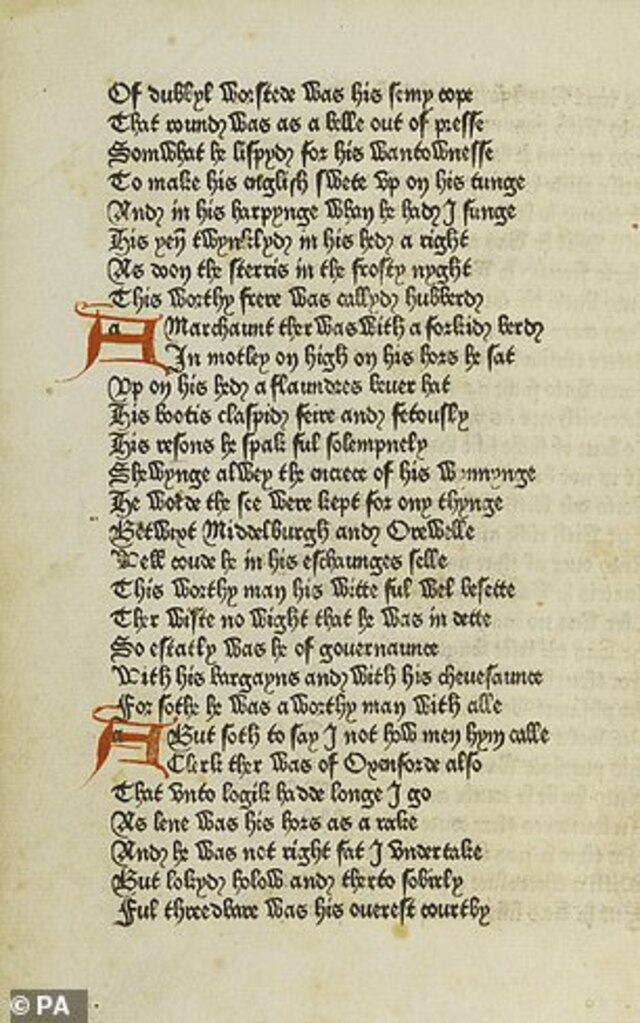 Of dubbyl worstede was his semy cope
That round was as a belle out of presse
Somwhat he lispyd for his wantownesse
To make his englissh swete vp on his tunge
And in his harpynge whan he had I sunge
His yen twynklyd in his hed a right
As doon the sterris in the frosty nyght
This worthy frere was callyd hubberd
A Marchaunt ther was with a forkid berd
In motley on high on his hors he sat
Vp on his hed a flaundres beuer hat
His bootis claspid feire and fetously
His resons he spak ful solempnely
Shewynge alwey the encrece of his wynnynge
He wolde the see were kept for ony thynge
Betwixt Middelburgh and Orewelle
Well coude he in his eschaunges selle
This worthy man his witte ful wel besette
Ther wiste no wight that he was in dette
So estatly was he of gouernaunce
With his bargayns and with his cheuesaunce
For sothe he was a worthy man with alle
But soth to say I not how men hym calle
A Clerk ther was of Oxenforde also
That vnto logik hadde longe I go
As lene was his hors as a rake
And he was not right fat I vndertake
But lokyd holow and therto sobirly
Ful threedbare was his ouerest courtby
© PA